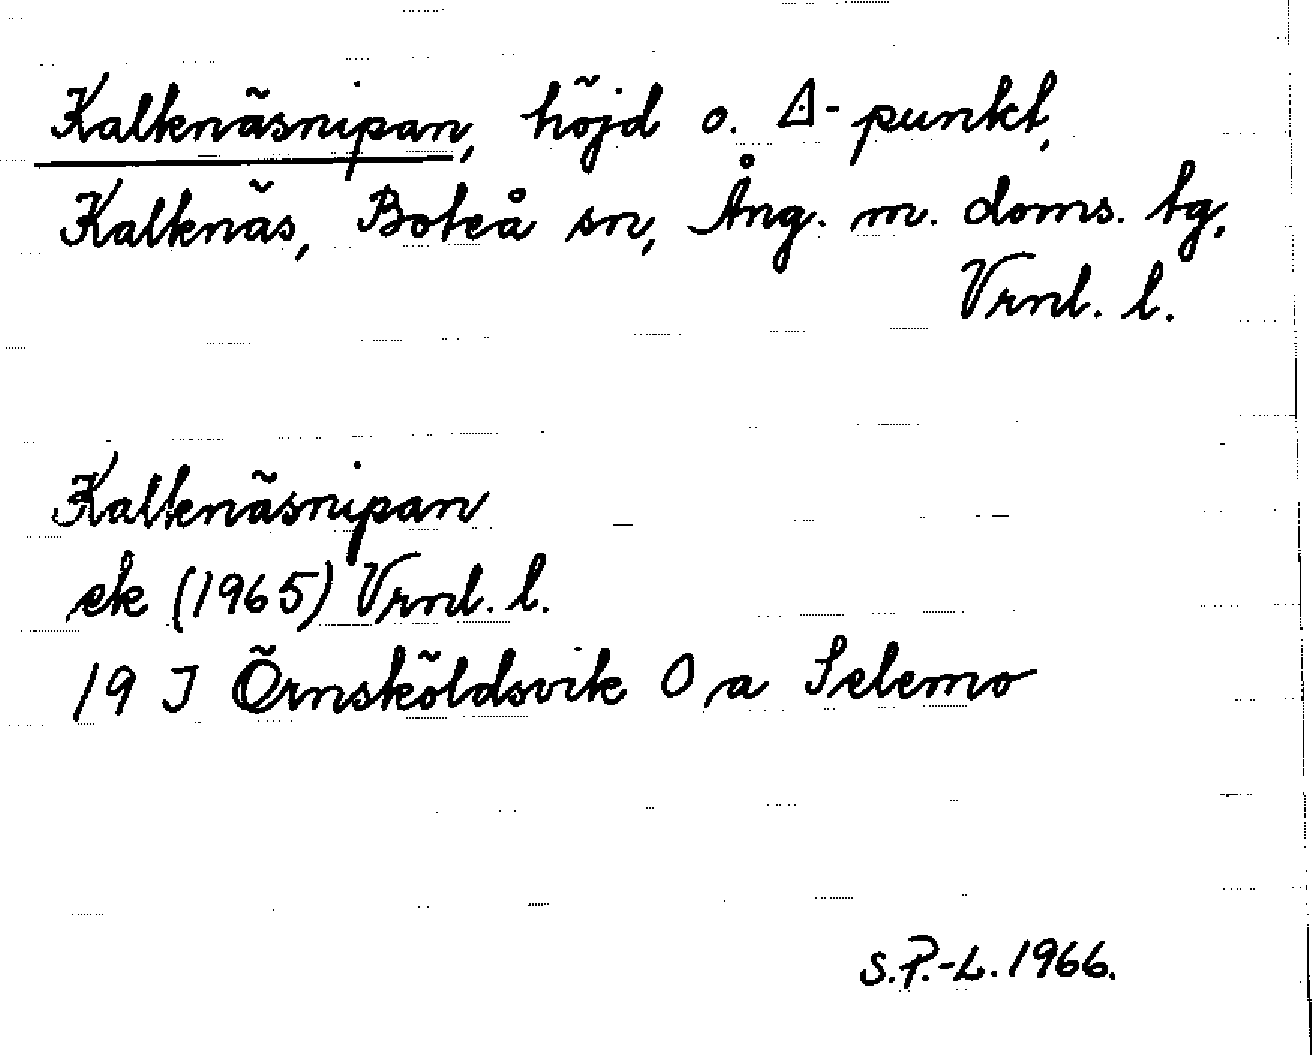 Kalknäsnipan, höjd o. ∆-punkt,
Kalknäs, Boteå sn, Ång. m. doms. tg,
Vrnl. l.
Kalknäsnipan
ek (1965) Vrnl. l.
19 I Örnsköldsvik O, a Selemo
S.P.-L. 1966.